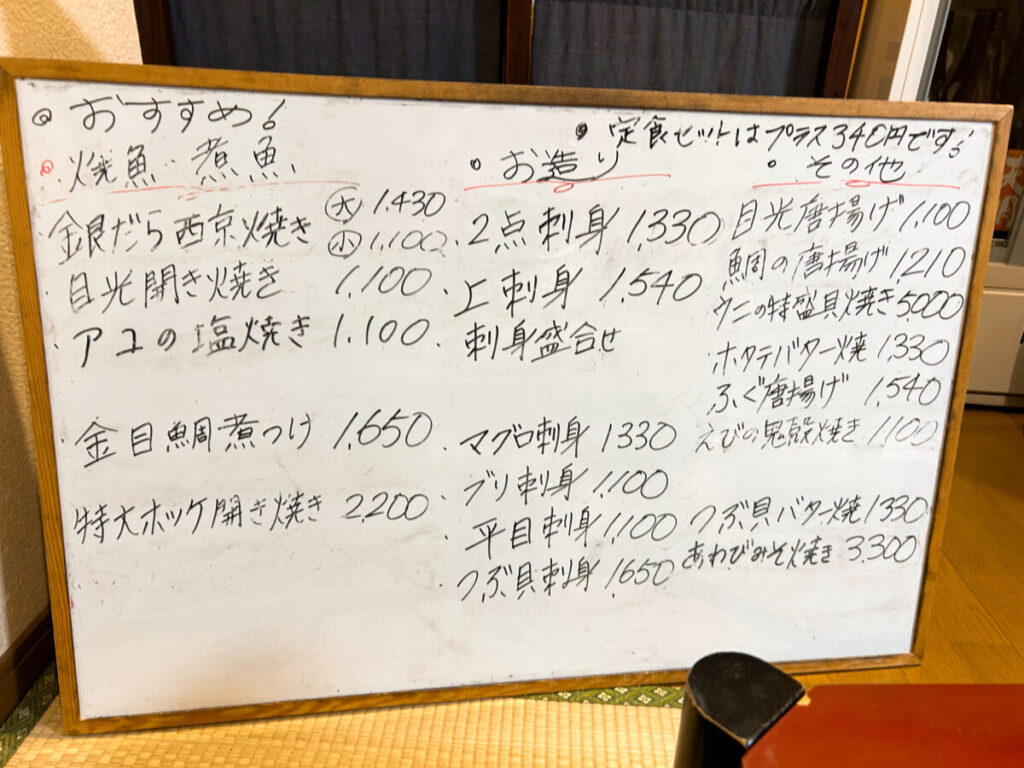 ◎ おすすめ!
◎ 焼魚・煮魚
銀だら西京焼き ㊅ 1.430
㊙ 1,100
目光開き焼き 1,100
アユの塩焼き 1.100
金目鯛煮つけ 1,650
特大ホッケ開き焼き 2.200
◎ 定食セットはプラス340円です!
・お造り
・2点刺身 1,330
・上刺身 1,540
・刺身盛合せ
・マグロ刺身 1330
・ブリ刺身 1,100
・平目刺身 1,100
・つぶ貝刺身 1,650
・その他
目光唐揚げ 1,100
鯛の唐揚げ 1,210
ウニの特盛貝焼き 5,000
・ホタテバター焼 1,330
・ふぐ唐揚げ 1,540
・えびの鬼殻焼き 1,100
・つぶ貝バター焼 1330
・あわびみそ焼き 3,300